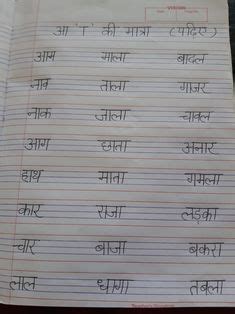 आ 'ा' की मात्रा (पढिए)
आम माला बादल
नाव ताला गाजर
नाक जाला चावल
आग छाता अनार
हाथ माता गमला
कार राजा लड़का
चार बाजा बकरा
लाल धागा तबला